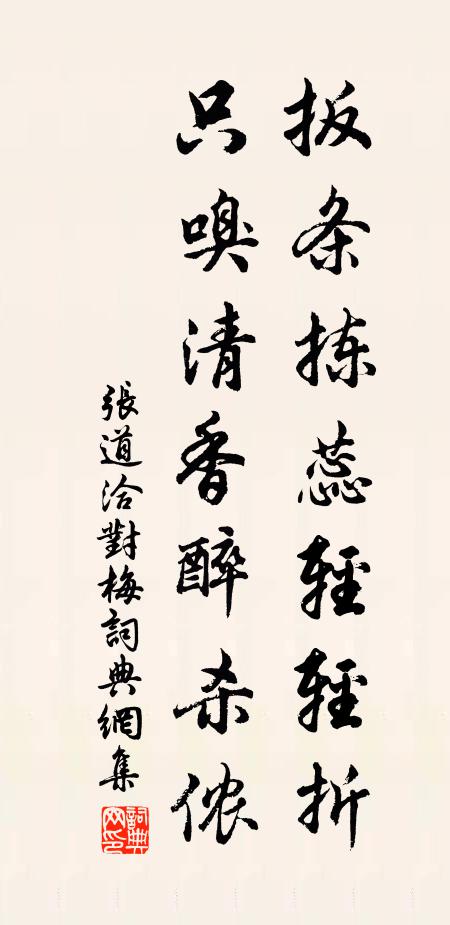 扳条拣蕊轻轾折
只嗅清香醉杀侬
張道洽對梅詞典網集
詞典網印